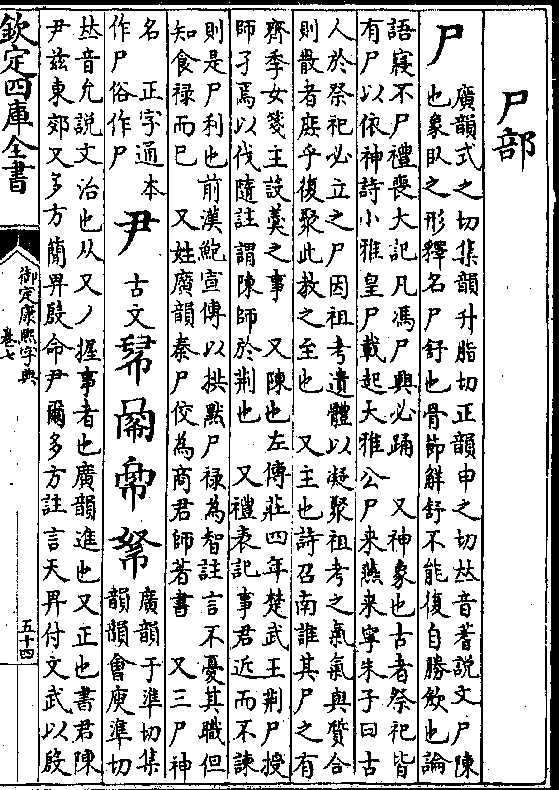 尸部
尸
廣韻式之切集韻升脂切正韻申之切𠀤音蓍說文尸陳
也象臥之形釋名尸舒也骨節解舒不能復自勝歛也論
語寢不尸禮喪大記凡馮尸興必踊 又神象也古者祭祀皆
有尸以依神詩小雅皇尸載起大雅公尸来燕来寧朱子曰古
人於祭祀必立之尸因祖考遺體以凝聚祖考之氣氣與質合
則散者庶乎復聚此教之至也 又主也詩召南誰其尸之有
齊季女箋主設羹之事 又陳也左傳莊四年楚武王荆尸授
師孑焉以伐隨註謂陳師於荆也 又禮表記事君近而不諫
則是尸利也前漢鮑宣傳以拱黙尸禄為智註言不憂其職但
知食禄而已 又姓廣韻秦尸佼為商君師著書 又三尸神
名 正字通本
作尸俗作尸
尹 古文
廣韻于準切集
韻韻會庾準切
𠀤音允說文治也从又丿握事者也廣韻進也又正也書君陳
尹兹東郊又多方簡畀殷命尹爾多方註言天畀付文武以殷
欽定四庫全書
御定康熙字典
卷七
五十四